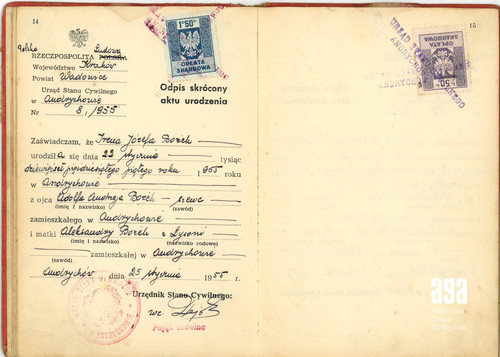 14
Polska Ludowa
RZECZPOSPOLITA POLSKA
Województwo Kraków
Powiat Wadowice
Urząd Stanu Cywilnego
w Andrychowie
Nr 8/1955
1 50 ZŁ
OPŁATA
SKARBOWA
Odpis skrócony
aktu urodzenia
Zaświadczam, że Irena Józefa
urodziła się dnia 22 stycznia tysiąc
dziewięćset pięćdziesiątego piątego roku 1955 roku
w Andrychowie
z ojca Adolfa Andrzeja szewc
(imię i nazwisko) (zawód)
zamieszkałego w Andrychowie
i matki Aleksandry z
(imię i nazwisko) (nazwisko rodowe)
zamieszkałej w Andrychowie
(zawód)
Andrychów, dnia 25 stycznia 1955 r.
Urzędnik Stanu Cywilnego:
15
URZĄD STANU CYWILNEGO
OPŁATA
SKARBOWA
50
aga